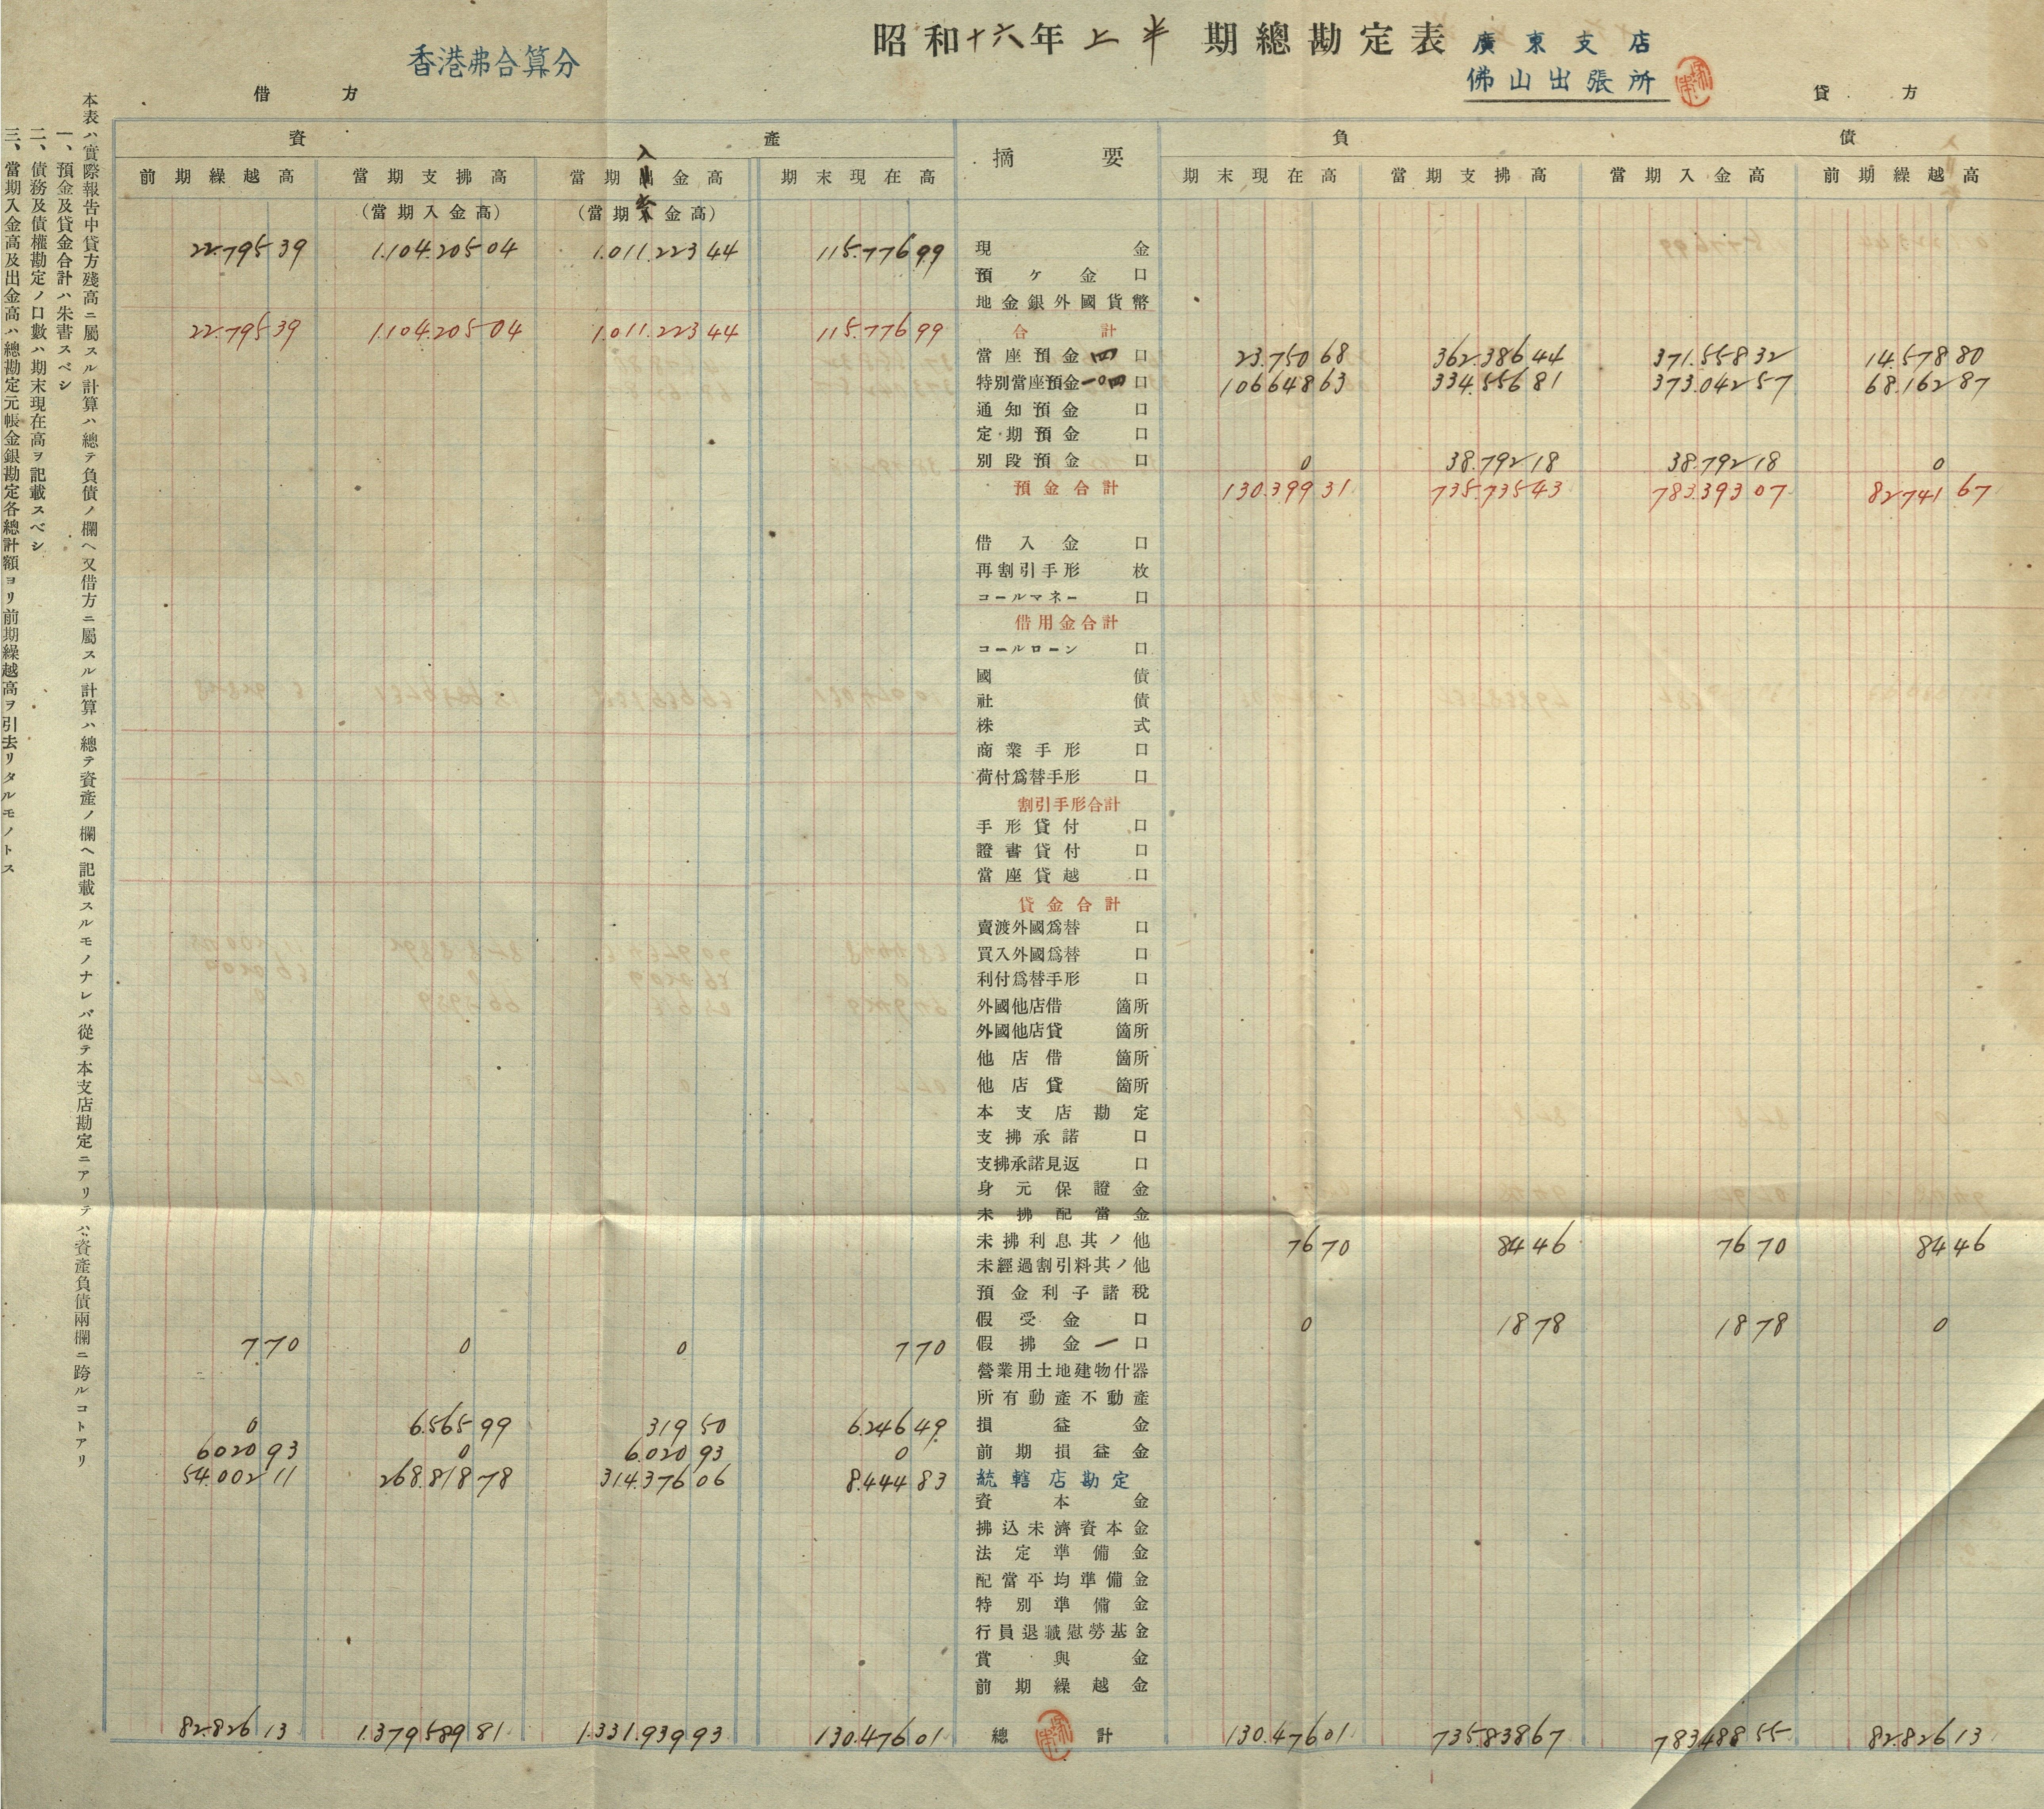 昭和十六年上半期總勘定表 廣東支店
佛山出張所
香港弗合算分
借方 貸方
資產 摘要 負債
前期繰越高 當期支拂高 當期出金高 期末現在高 期末現在高 當期支拂高 當期入金高 前期繰越高
(當期入金高) (當期金高)
22.795 39 1.104.205 04 1.011.223 44 115.776 99 現金
預ケ金 口
地金銀外國貨幣
22.795 39 1.104.205 04 1.011.223 44 115.776 99 合計
當座預金 四 口 23.750 68 362.386 44 371.558 32 14.578 80
特別當座預金 一〇四 口 106648 63 334.556 81 373.042 57 68.162 87
通知預金 口
定期預金 口
別段預金 口 0 38.792 18 38.792 18 0
預金合計 130.399 31 735.735 43 783.393 07 82741 67
借入金 口
再割引手形 枚
コールマネー 口
借用金合計
コールローン 口
國債
社債
株式
商業手形 口
荷付爲替手形 口
割引手形合計
手形貸付 口
證書貸付 口
當座貸越 口
貸金合計
賣渡外國爲替 口
買入外國爲替 口
利付爲替手形 口
外國他店借 箇所
外國他店貸 箇所
他店借 箇所
他店貸 箇所
本支店勘定
支拂承諾 口
支拂承諾見返 口
身元保證金
未拂配當金
未拂利息其ノ他 76 70 84 46 76 70 84 46
未經過割引料其ノ他
預金利子諸稅
假受金 口 0 18 78 18 78 0
7 70 0 0 7 70 假拂金 一 口
營業用土地建物什器
所有動產不動產
0 6.565 99 319 50 6.246 49 損益金
6020 93 0 6.020 93 0 前期損益金
54.002 11 268.818 78 314.376 06 8.444 83 統轄店勘定
資本金
拂込未濟資本金
法定準備金
配當平均準備金
特別準備金
行員退職慰勞基金
賞與金
前期繰越金
82.826 13 1.379.589 81 1.331.939 93 130.476 01 總計 130.476 01 735.838 67 783.488 55 82.826 13
本表ハ實際報吿中貸方殘高ニ屬スル計算ハ總テ負債ノ欄ヘ又借方ニ屬スル計算ハ總テ資產ノ欄ヘ記載スルモノナレバ從テ本支店勘定ニアリテハ資產負債兩欄ニ跨ルコトアリ
一、預金及貸金合計ハ朱書スベシ
二、債務及債權勘定ノ口數ハ期末現在高ヲ記載スベシ
三、當期入金高及出金高ハ總勘定元帳金銀勘定各總計額ヨリ前期繰越高ヲ引去リタルモノトス